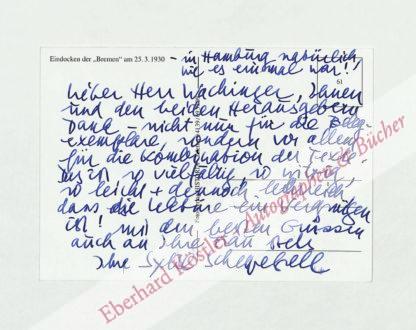 Eindocken der „Bremen" am 25.3.1930 – in Hamburg natürlich,
wie es einmal war!
61
Lieber Herr Wachinger, Ihnen
und den beiden Herausgebern
Dank – nicht nur für die Beleg-
exemplare, sondern vor allem
für die Kombination der Texte
so vielfältig so witzig
so leicht + dennoch
dass die Lektüre ein Vergnügen
ist! Mit den besten Grüssen
auch an Ihre Frau stets
Ihre
Eberhard Köstler · Autographen & Bücher